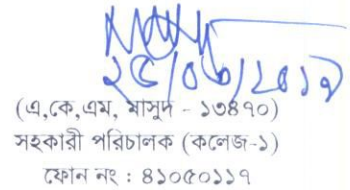 ২৫/০৬/২০১৭
(এ,কে,এম, মাসুদ - ১৩৪৭০)
সহকারী পরিচালক (কলেজ-১)
ফোন নং : ৪১০৫০১১৭